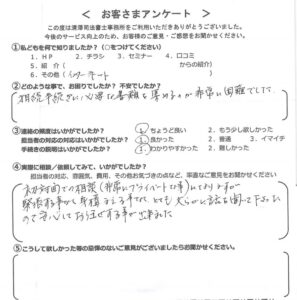 ＜ お客さまアンケート ＞
この度は清澤司法書士事務所をご利用いただきありがとうございました。
今後のサービス向上のため、お客様のご意見・ご感想をお聞かせください。
①私どもを何で知りましたか？（○をつけてください）
１．ＨＰ　２．チラシ　３．セミナー　４．口コミ
５．紹 介（　からの紹介）
６．その他（　）
②どのような事で、お困りでしたか？ 不安でしたか？
相続手続きに必要な書類を集めるのが非常に困難でした。
③連絡の頻度はいかがでしたか？　１．ちょうど良い　２．もう少し欲しかった
担当者の対応はいかがでしたか？　１．良かった　２．普通　３．イマイチ
手続きの説明はいかがでしたか？　１．わかりやすかった　２．難しかった
④実際に相談／依頼してみて、いかがでしたか？
担当者の対応、雰囲気、費用、その他お気づきの点など、率直なご意見をお聞かせください
初対面での相談（非常にプライベートな事）
緊張する
ので安心してお任せする事が出来ました
⑤こうして欲しかった等の忌憚のないご意見がございましたらお聞かせください。